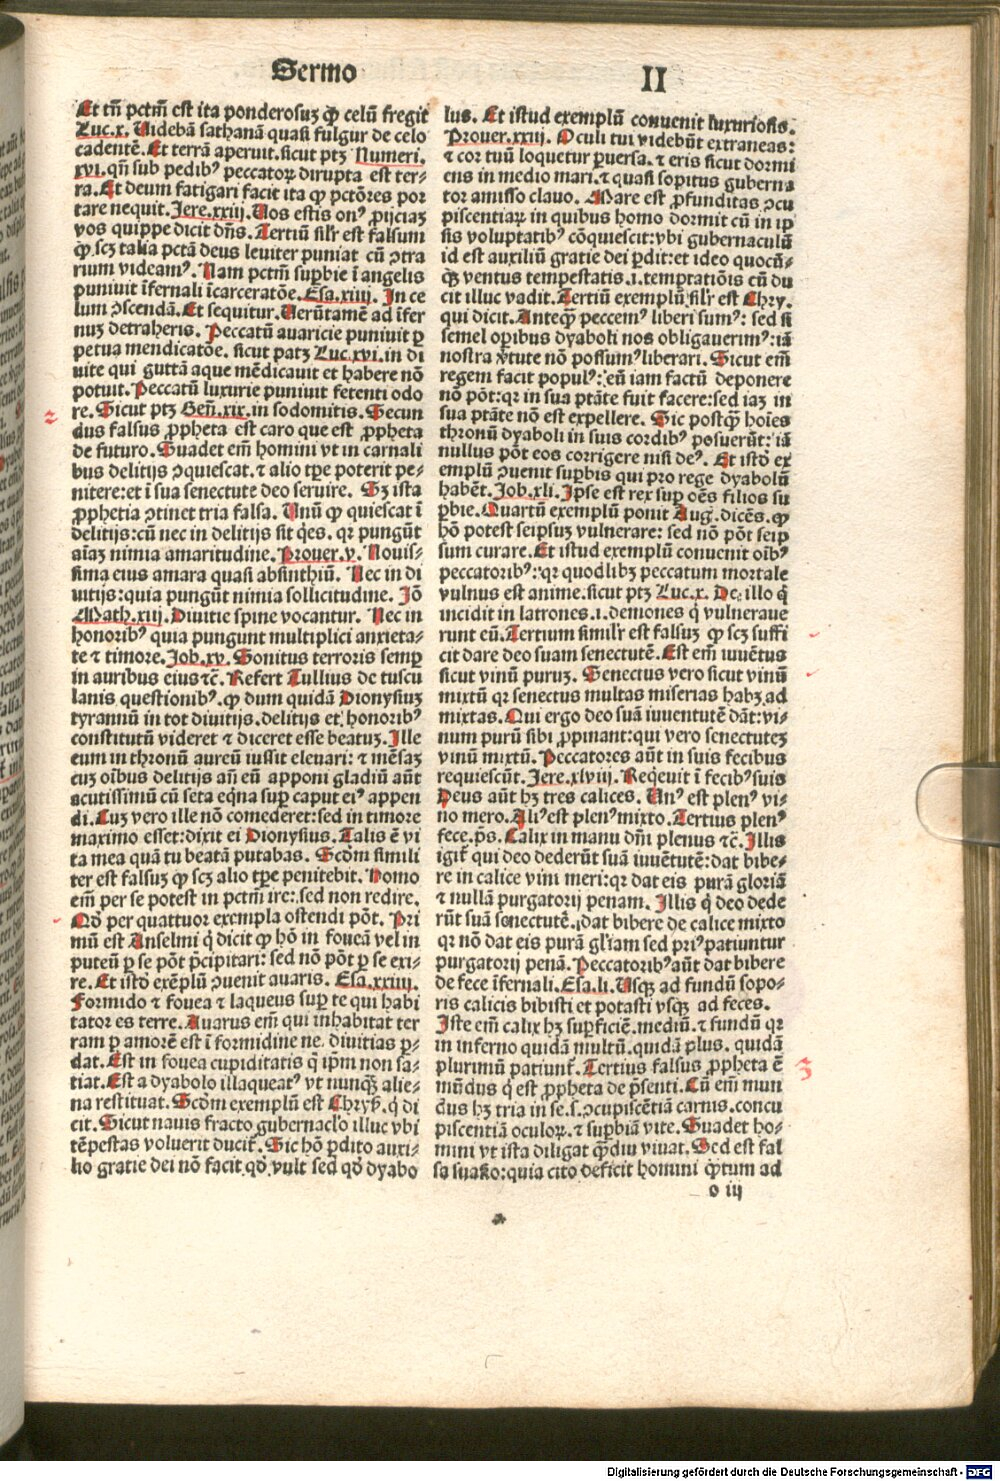 Sermo II
Et tñ pctm̃ est ita ponderosuꝫ ꝙ celũ fregit
Luc.x. Uidebã sathanã quasi fulgur de celo
cadentẽ. Et terrã aperuit. sicut ptꝫ Numeri.
xvi. qñ sub pedibꝰ peccatoꝝ dirupta est ter⸗
ra. Et deum fatigari facit ita ꝙ pctõres por
tare nequit. Jere.xxiij. Uos estis onꝰ ꝓijciaꝫ
vos quippe dicit dñs. Tertiũ silr̃ est falsum
ꝙ scꝫ talia pctã deus leuiter puniat cũ ɔtra
rium videamꝰ. Nam pctm̃ suꝑbie ĩ angelis
puniuit ĩfernali ĩcarceratõe. Esa.xiiij. In ce
lum ɔscendã. Et sequitur. Uerũtamẽ ad ĩfer
nuꝫ detraheris. Peccatũ auaricie puniuit ꝑ
petua mendicatõe. sicut patꝫ Luc.xvi. in di
uite qui guttã aque mẽdicauit et habere nõ
potuit. Peccatũ luxurie puniuit fetenti odo
re. Sicut ptꝫ Geñ.xix. in sodomitis. Secun
dus falsus ꝓpheta est caro que est ꝓpheta
de futuro. Suadet em̃ homini vt in carnali
bus delitijs ɔquiescat. ⁊ alio tꝑe poterit pe⸗
nitere: et ĩ sua senectute deo seruire. Sꝫ ista
ꝓphetia ɔtinet tria falsa. Unũ ꝙ quiescat ĩ
delitijs: cũ nec in delitijs sit q̃es. qꝛ pungũt
aĩaꝫ nimia amaritudine. Prouer.v. Nouis⸗
sima eius amara quasi absinthiũ. Nec in di
uitijs: quia pungũt nimia sollicitudine. Jõ
Math.xiij. Diuitie spine vocantur. Nec in
honoribꝰ quia pungunt multiplici anxieta⸗
te ⁊ timore. Job.xv. Sonitus terroris semꝑ
in auribus eius ⁊c̃. Refert Tullius de tuscu
lanis questionibꝰ. ꝙ dum quidã Dionysiuꝫ
tyrannũ in tot diuitijs. delitijs et honoribꝰ
constitutũ videret ⁊ diceret esse beatuꝫ. Ille
eum in thronũ aureũ iussit eleuari: ⁊ mẽsaꝫ
cuꝫ oĩbus delitijs añ eũ apponi gladiũ aũt
acutissimũ cũ seta eq̃na suꝑ caput eiꝰ appen
di. Cuꝫ vero ille nõ comederet: sed in timore
maximo esset: dixit ei Dionysius. Talis ẽ vi
ta mea quã tu beatã putabas. Scd̃m simili
ter est falsuꝫ ꝙ scꝫ alio tꝑe penitebit. Homo
em̃ per se potest in pctm̃ ire: sed non redire.
Qd̃ per quattuor exempla ostendi põt. Pri
mũ est Anselmi q̇ dicit ꝙ hõ in foueã vel in
puteũ ꝑ se põt p̃cipitari: sed nõ põt ꝑ se exi⸗
re. Et istd̃ exẽplũ ɔuenit auaris. Esa.xxiiij.
Formido ⁊ fouea ⁊ laqueus suꝑ te qui habi
tator es terre. Auarus em̃ qui inhabitat ter
ram ꝑ amorẽ est ĩ formidine ne. diuitias ꝑ⸗
dat. Est in fouea cupiditatis q̃ ip̃m non sa⸗
tiat. Est a dyabolo illaqueatꝰ vt nunqꝫ alie⸗
na restituat. Scd̃m exemplũ est Chryẜ. q̇ di
cit. Sicut nauis fracto gubernacl̃o illuc vbi
tẽpestas voluerit ducit̃. Sic hõ ꝑdito auxi⸗
lio gratie dei nõ facit qd̃ vult sed qd̃ dyabo
lus. Et istud exemplũ conuenit luxuriosis.
Prouer.xxiij. Oculi tui videbũt extraneas:
⁊ cor tuũ loquetur ꝑuersa. ⁊ eris sicut dormi
ens in medio mari. ⁊ quasi sopitus guberna
tor amisso clauo. Mare est ꝓfunditas ɔcu
piscentiaꝝ in quibus homo dormit cũ in ip̃
sis voluptatibꝰ cõquiescit: vbi gubernaculũ
id est auxiliũ gratie dei ꝑdit: et ideo quocũ⸗
qꝫ ventus tempestatis .i. temptatiõis cũ du
cit illuc vadit. Tertiũ exemplũ silr̃ est Chry.
qui dicit. Anteqꝫ peccemꝰ liberi sumꝰ: sed si
semel oꝑibus dyaboli nos obligauerimꝰ: iã
nostra v̓tute nõ possumꝰ liberari. Sicut em̃
regem facit populꝰ: eũ iam factũ deponere
nõ põt: qꝛ in sua ptãte fuit facere: sed iaꝫ in
sua ptãte nõ est expellere. Sic postqꝫ hoĩes
thronũ dyaboli in suis cordibꝰ posuerũt: iã
nullus põt eos corrigere nisi deꝰ. Et istd̃ ex
emplũ ɔuenit suꝑbis qui pro rege dyabolũ
habẽt. Job.xli. Ipse est rex suꝑ oẽs filios su
ꝑbie. Quartũ exemplũ ponit Aug. dicẽs. ꝙ
hõ potest seipsuꝫ vulnerare: sed nõ põt seip
sum curare. Et istud exemplũ conuenit oĩbꝰ
peccatoribꝰ: qꝛ quodlibꝫ peccatum mortale
vulnus est anime. sicut ptꝫ Luc.x. De illo q̇
incidit in latrones .i. demones q̇ vulneraue
runt eũ. Tertium similr̃ est falsuꝫ ꝙ scꝫ suffi
cit dare deo suam senectutẽ. Est em̃ iuuẽtus
sicut vinũ puruꝫ. Senectus vero sicut vinũ
mixtũ qꝛ senectus multas miserias habꝫ ad
mixtas. Qui ergo deo suã iuuentutẽ dãt: vi⸗
num purũ sibi ꝓpinant: qui vero senectuteꝫ
vinũ mixtũ. Peccatores aũt in suis fecibus
requiescũt. Jere.xlviij. Reqeuit ĩ fecibꝰ suis
Deus aũt hꝫ tres calices. Unꝰ est plenꝰ vi⸗
no mero. Aliꝰ est plenꝰ mixto. Tertius plenꝰ
fece. p̃s. Calix in manu dñi plenus ⁊c̃. Illis
igit̃ qui deo dederũt suã iuuẽtutẽ: dat bibe⸗
re in calice vini meri: qꝛ dat eis purã gloriã
⁊ nullã purgatorij penam. Illis q̇ deo dede
rũt suã senectutẽ. dat bibere de calice mixto
qꝛ nõ dat eis purã gl̃iam sed priꝰ patiuntur
purgatorij penã. Peccatoribꝰ aũt dat bibere
de fece ĩfernali. Esa.li. Usqꝫ ad fundũ sopo⸗
ris calicis bibisti et potasti vsqꝫ ad feces.
Iste em̃ calix hꝫ suꝑficiẽ. mediũ. ⁊ fundũ qꝛ
in inferno quidã multũ. quidã plus. quidã
plurimũ patiunt̃. Tertius falsus ꝓpheta ẽ
mũdus q̇ est ꝓpheta de p̃senti. Cũ em̃ mun
dus hꝫ tria in se .s. ɔcupiscẽtiã carnis. concu
piscentiã oculoꝝ. ⁊ suꝑbiã vite. Suadet ho⸗
mini vt ista diligat qꝫdiu viuat. Sed est fal
sa suasio: quia cito deficit homini qꝫtum ad
o iij
2
3
Digitalisierung gefördert durch die Deutsche Forschungsgemeinschaft - DFG